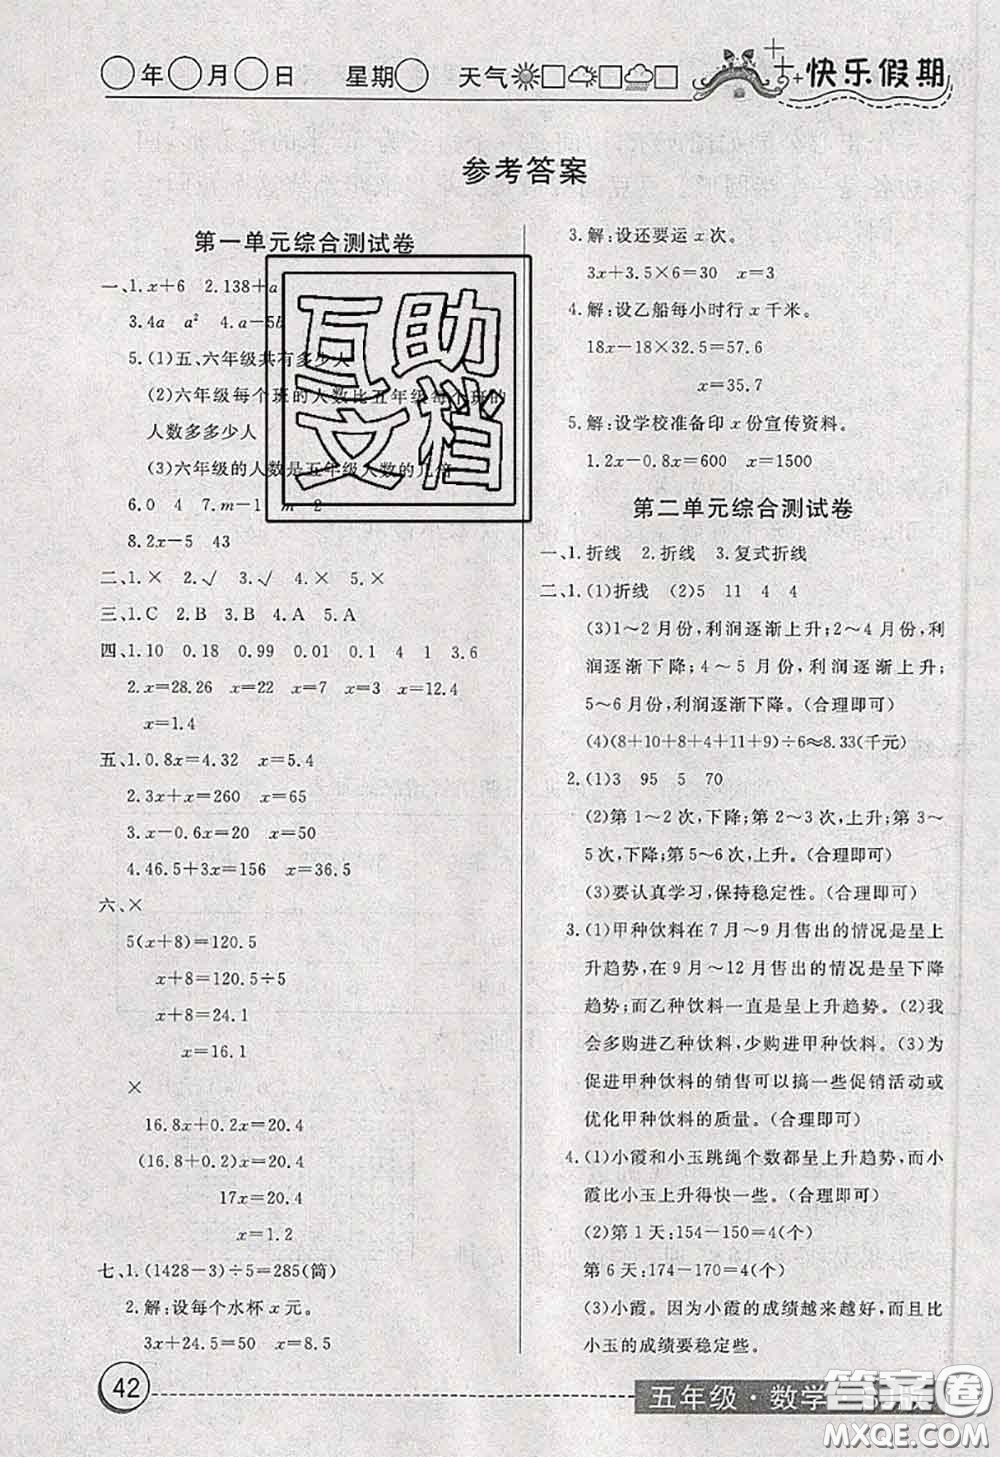 ○年○月○日 星期○ 天气□□□ 快乐假期
参考答案
第一单元综合测试卷
一、1.x+6 2.138+a
3.4a a² 4.a-5b
5.(1)五、六年级共有多少人
(2)六年级每个班的人数比五年级每个班的
人数多多少人
(3)六年级的人数是五年级人数的几倍
6.0 4 7.m-1 m-2
8.2x-5 43
二、1.× 2.√ 3.√ 4.× 5.×
三、1.C 2.B 3.B 4.A 5.A
四、1.10 0.18 0.99 0.01 0.1 4 1 3.6
2.x=28.26 x=22 x=7 x=12.4
x=1.4
五、1.0.8x=4.32 x=5.4
2.3x+x=260 x=65
3.x-0.6x=20 x=50
4.46.5+3x=156 x=36.5
六、×
5(x+8)=120.5
x+8=120.5÷5
x+8=24.1
x=16.1
×
16.8x+0.2x=20.4
(16.8+0.2)x=20.4
17x=20.4
x=1.2
七、1.(1428-3)÷5=285(筒)
2.解:设每个水杯x元。
3x+24.5=50 x=8.5
3.解:设还要运x次。
3x+3.5×6=30 x=3
4.解:设乙船每小时行x千米。
18x-18×32.5=57.6
x=35.7
5.解:设学校准备印x份宣传资料。
1.2x-0.8x=600 x=1500
第二单元综合测试卷
一、1.折线 2.折线 3.复式折线
二、1.(1)折线 (2)5 11 4 4
(3)1~2月份,利润逐渐上升;2~4月份,利
润逐渐下降;4~5月份,利润逐渐上升;
5~6月份,利润逐渐下降。(合理即可)
(4)(8+10+8+4+11+9)÷6≈8.33(千元)
2.(1)3 95 5 70
(2)第1~2次,下降;第2~3次,上升;第3~
5次,下降;第5~6次,上升。(合理即可)
(3)要认真学习,保持稳定性。(合理即可)
3.(1)甲种饮料在7月~9月售出的情况是呈上
升趋势,在9月~12月售出的情况是呈下降
趋势;而乙种饮料一直是呈上升趋势。(2)我
会多购进乙种饮料,少购进甲种饮料。(3)为
促进甲种饮料的销售可以搞一些促销活动或
优化甲种饮料的质量。(合理即可)
4.(1)小霞和小玉跳绳个数都呈上升趋势,而小
霞比小玉上升得快一些。(合理即可)
(2)第1天:154-150=4(个)
第6天:174-170=4(个)
(3)小霞。因为小霞的成绩越来越好,而且比
小玉的成绩要稳定些。
互助
文档
42
五年级·数学
答案圈
MXQE.COM